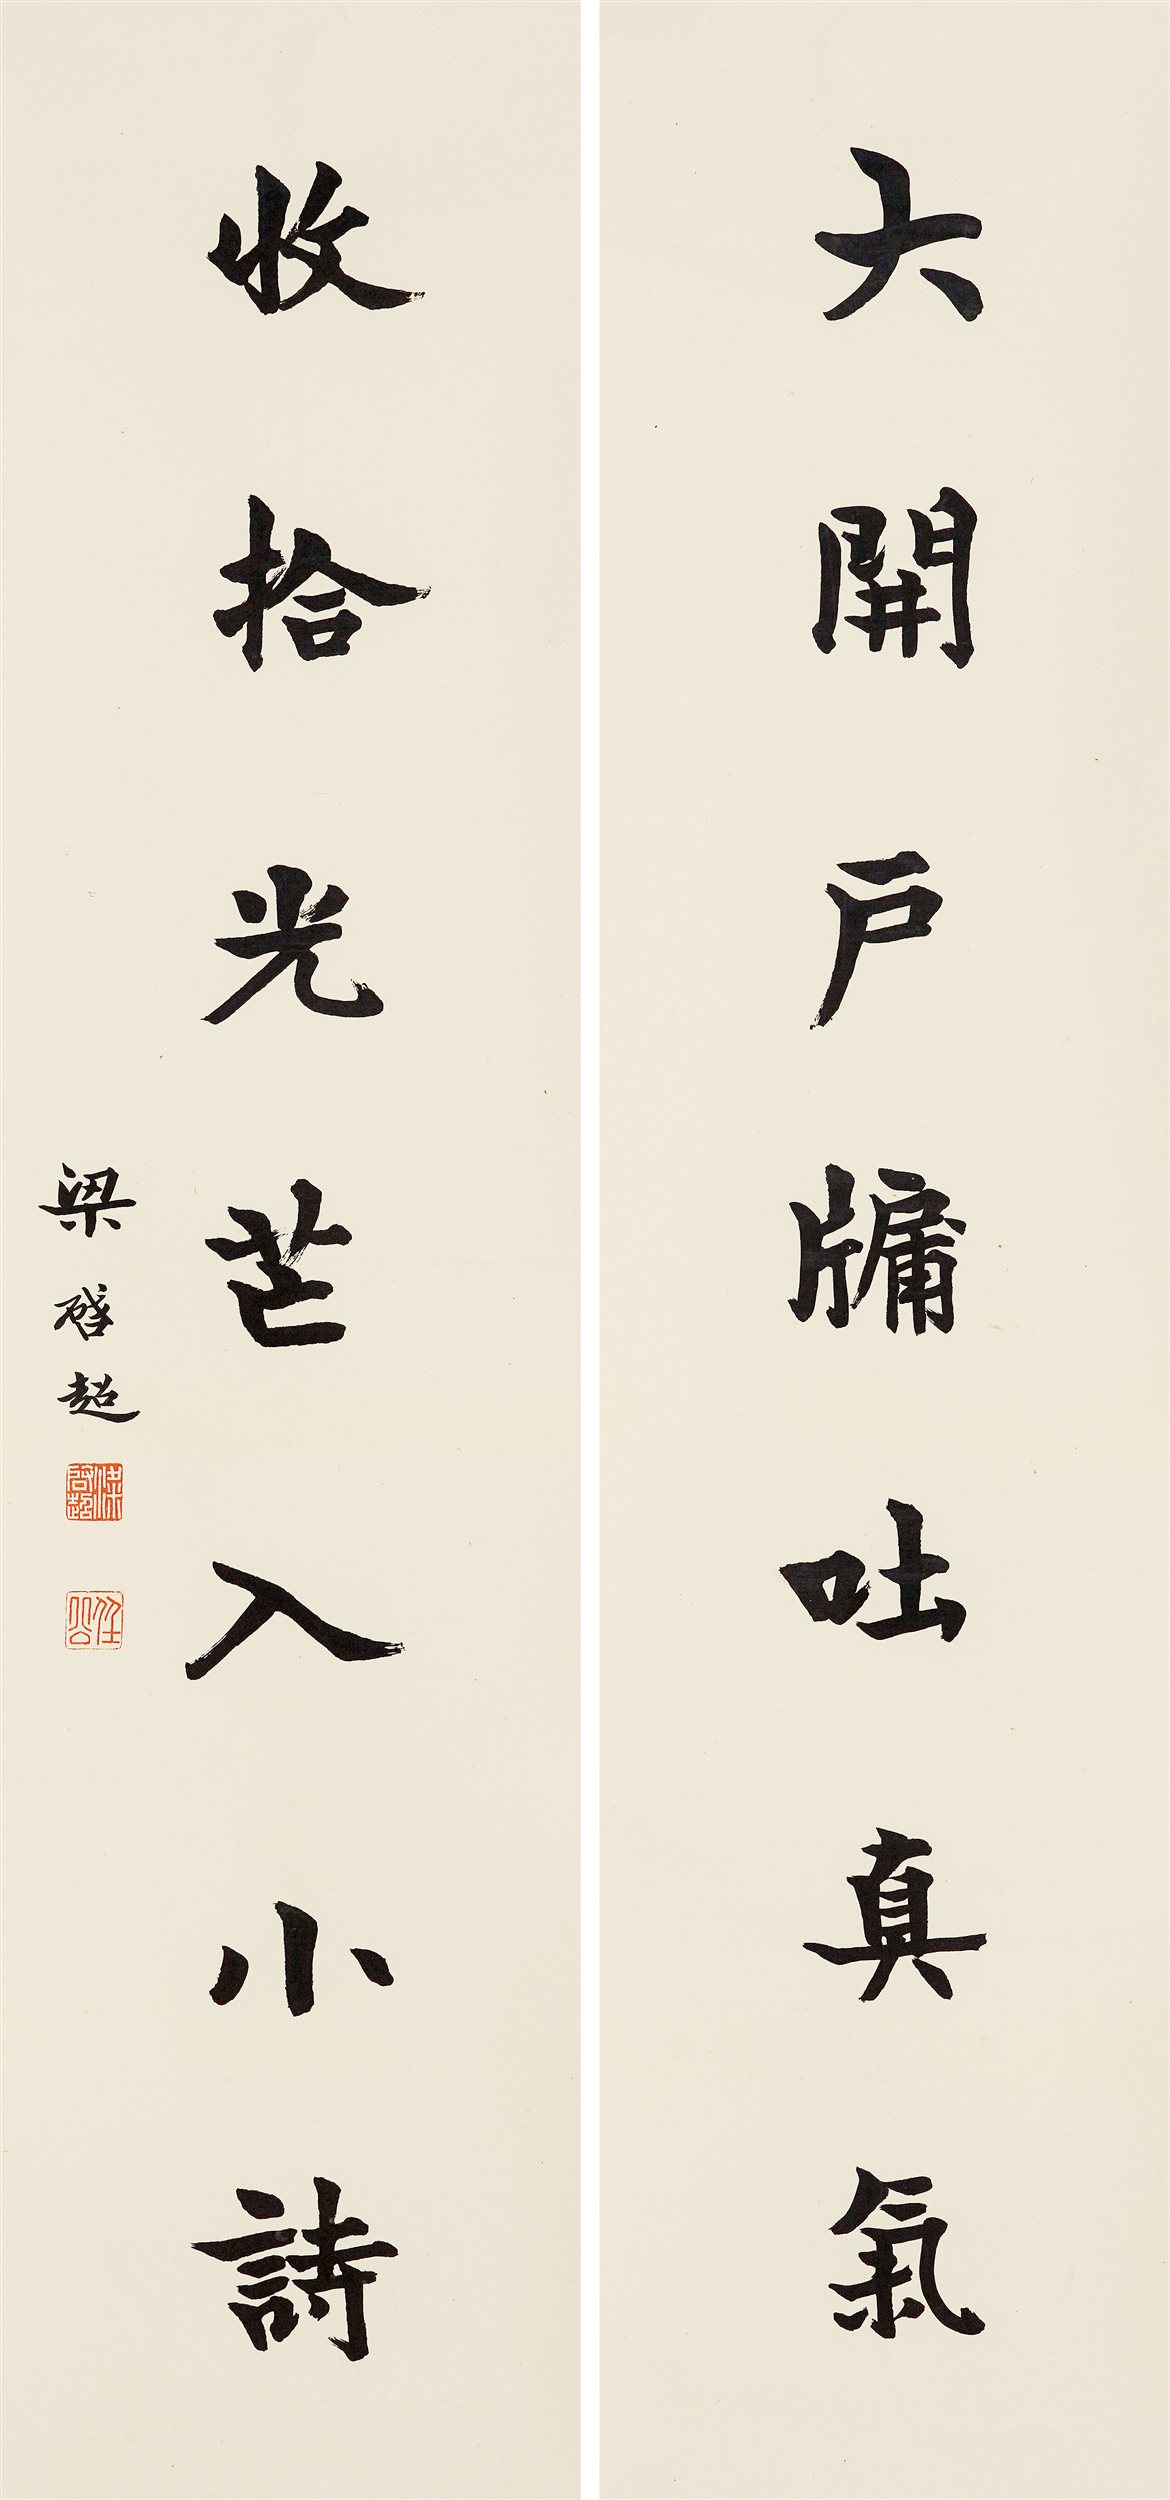 大開户牖吐真氣
收拾光芒入小詩
梁啓超
梁啓超
任公